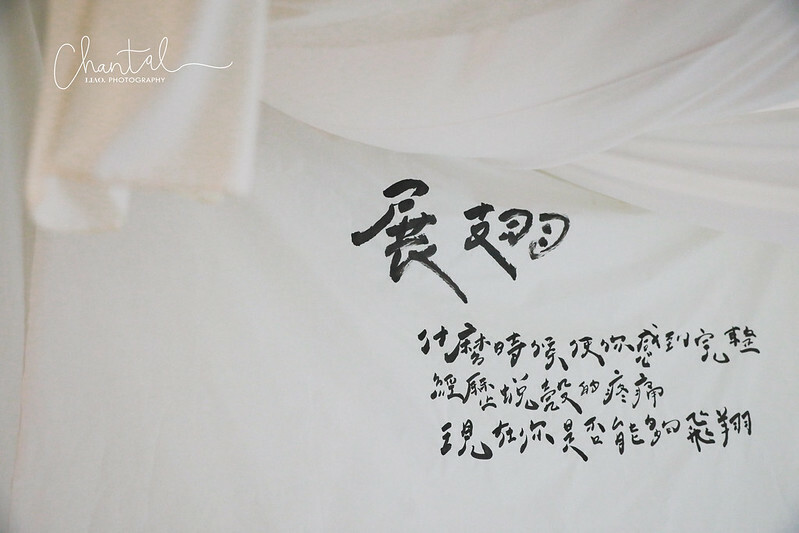 Chantal
LIAO. PHOTOGRAPHY
展翅
什麼時候使你感到完整
經歷蛻殼的疼痛
現在你是否能夠飛翔